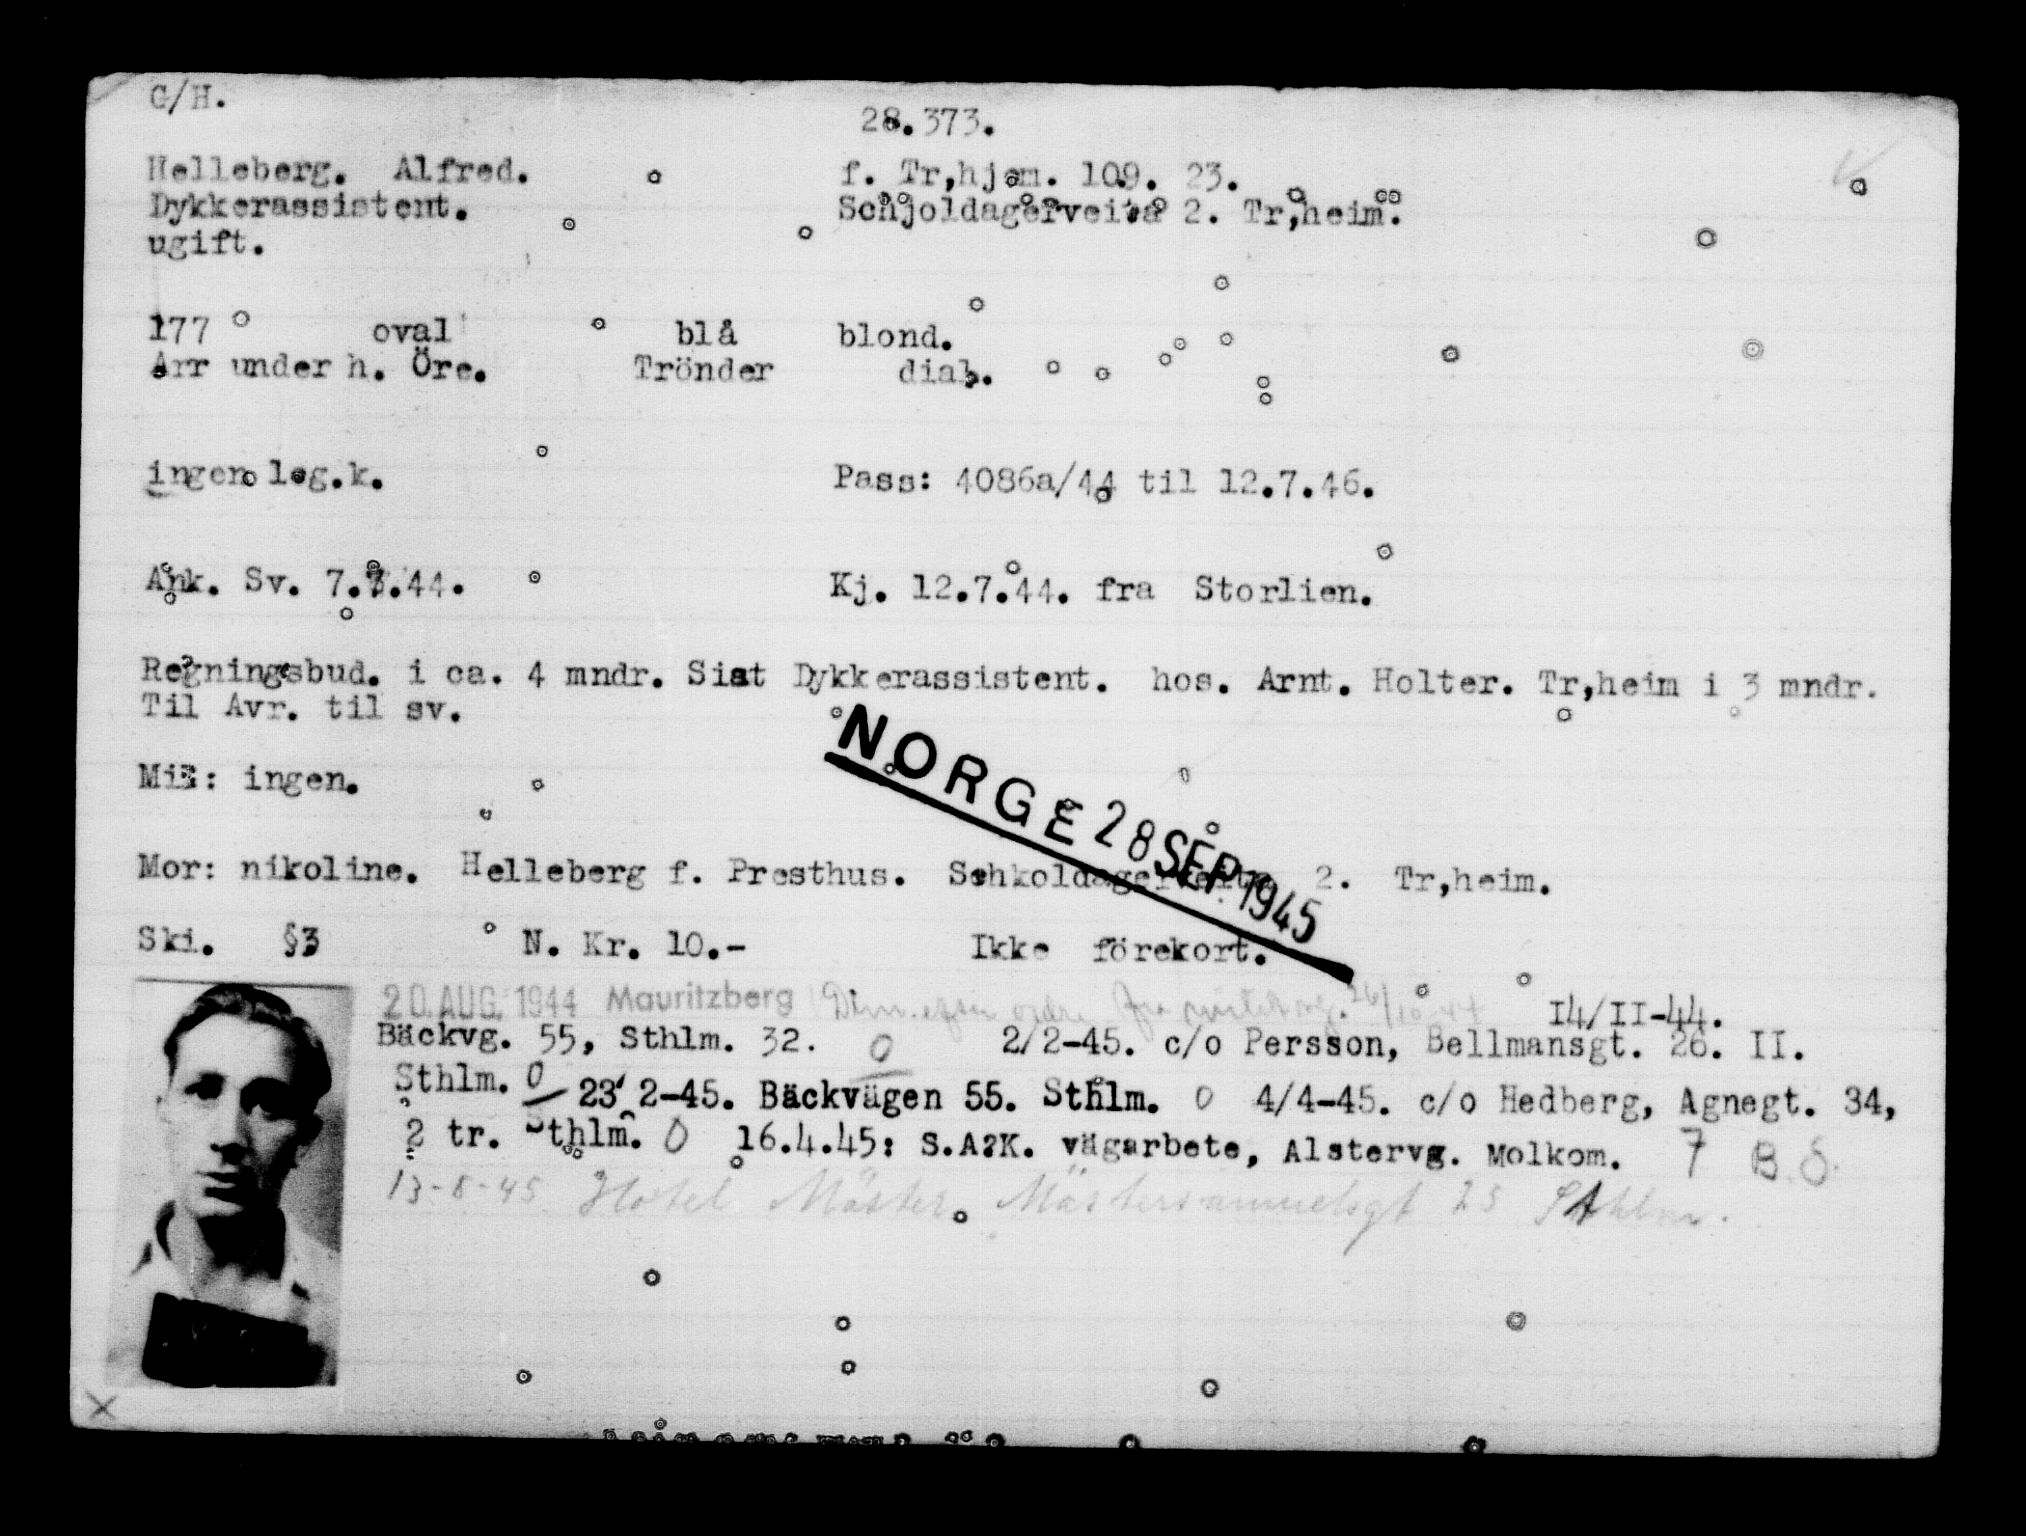 G/H.
28.373.
Helleberg. Alfred. f. Tr,hjem. 109. 23.
Dykkerassistent. Schjoldagerveita 2. Tr,heim.
ugift.
177 oval blå blond.
Arr under h. Öre. Trönder dial.
ingen leg.k. Pass: 4086a/44 til 12.7.46.
Ank. Sv. 7.7.44. Kj. 12.7.44. fra Storlien.
Regningsbud. i ca. 4 mndr. Sist Dykkerassistent. hos. Arnt. Holter. Tr,heim i 3 mndr.
Til Avr. til sv.
NORGE 28 SEP. 1945
Mil: ingen.
Mor: nikoline. Helleberg f. Presthus. Schkoldagerveita 2. Tr,heim.
Ski. §3 N. Kr. 10.- Ikke förekort.
20. AUG. 1944 Mauritzberg Dim. efter ordre fra 14/11-44.
Bäckvg. 55, Sthlm. 32. 0 2/2-45. c/o Persson, Bellmansgt. 26. II.
Sthlm. 0 23 2-45. Bäckvägen 55. Sthlm. 0 4/4-45. c/o Hedberg, Agnegt. 34,
2 tr. Sthlm. 0 16.4.45: S.A?K. vägarbete, Alstervg. Molkom. 7 B.S.
13-8-45 Hotel Mäster Mästersamuelsgt 25 Sthlm.